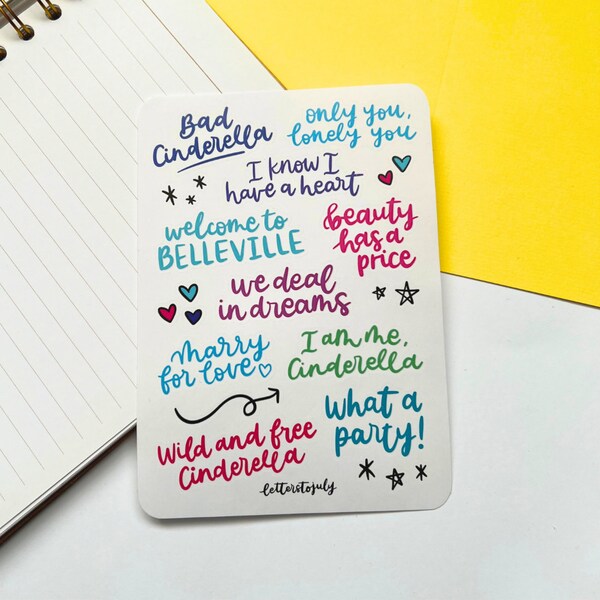 Bad
Cinderella
only you,
lonely you
I know I
have a heart
welcome to
BELLEVILLE
beauty
has a
price
we deal
in dreams
Marry
for love
I am me,
Cinderella
What a
party!
Wild and free
Cinderella
letterstojuly